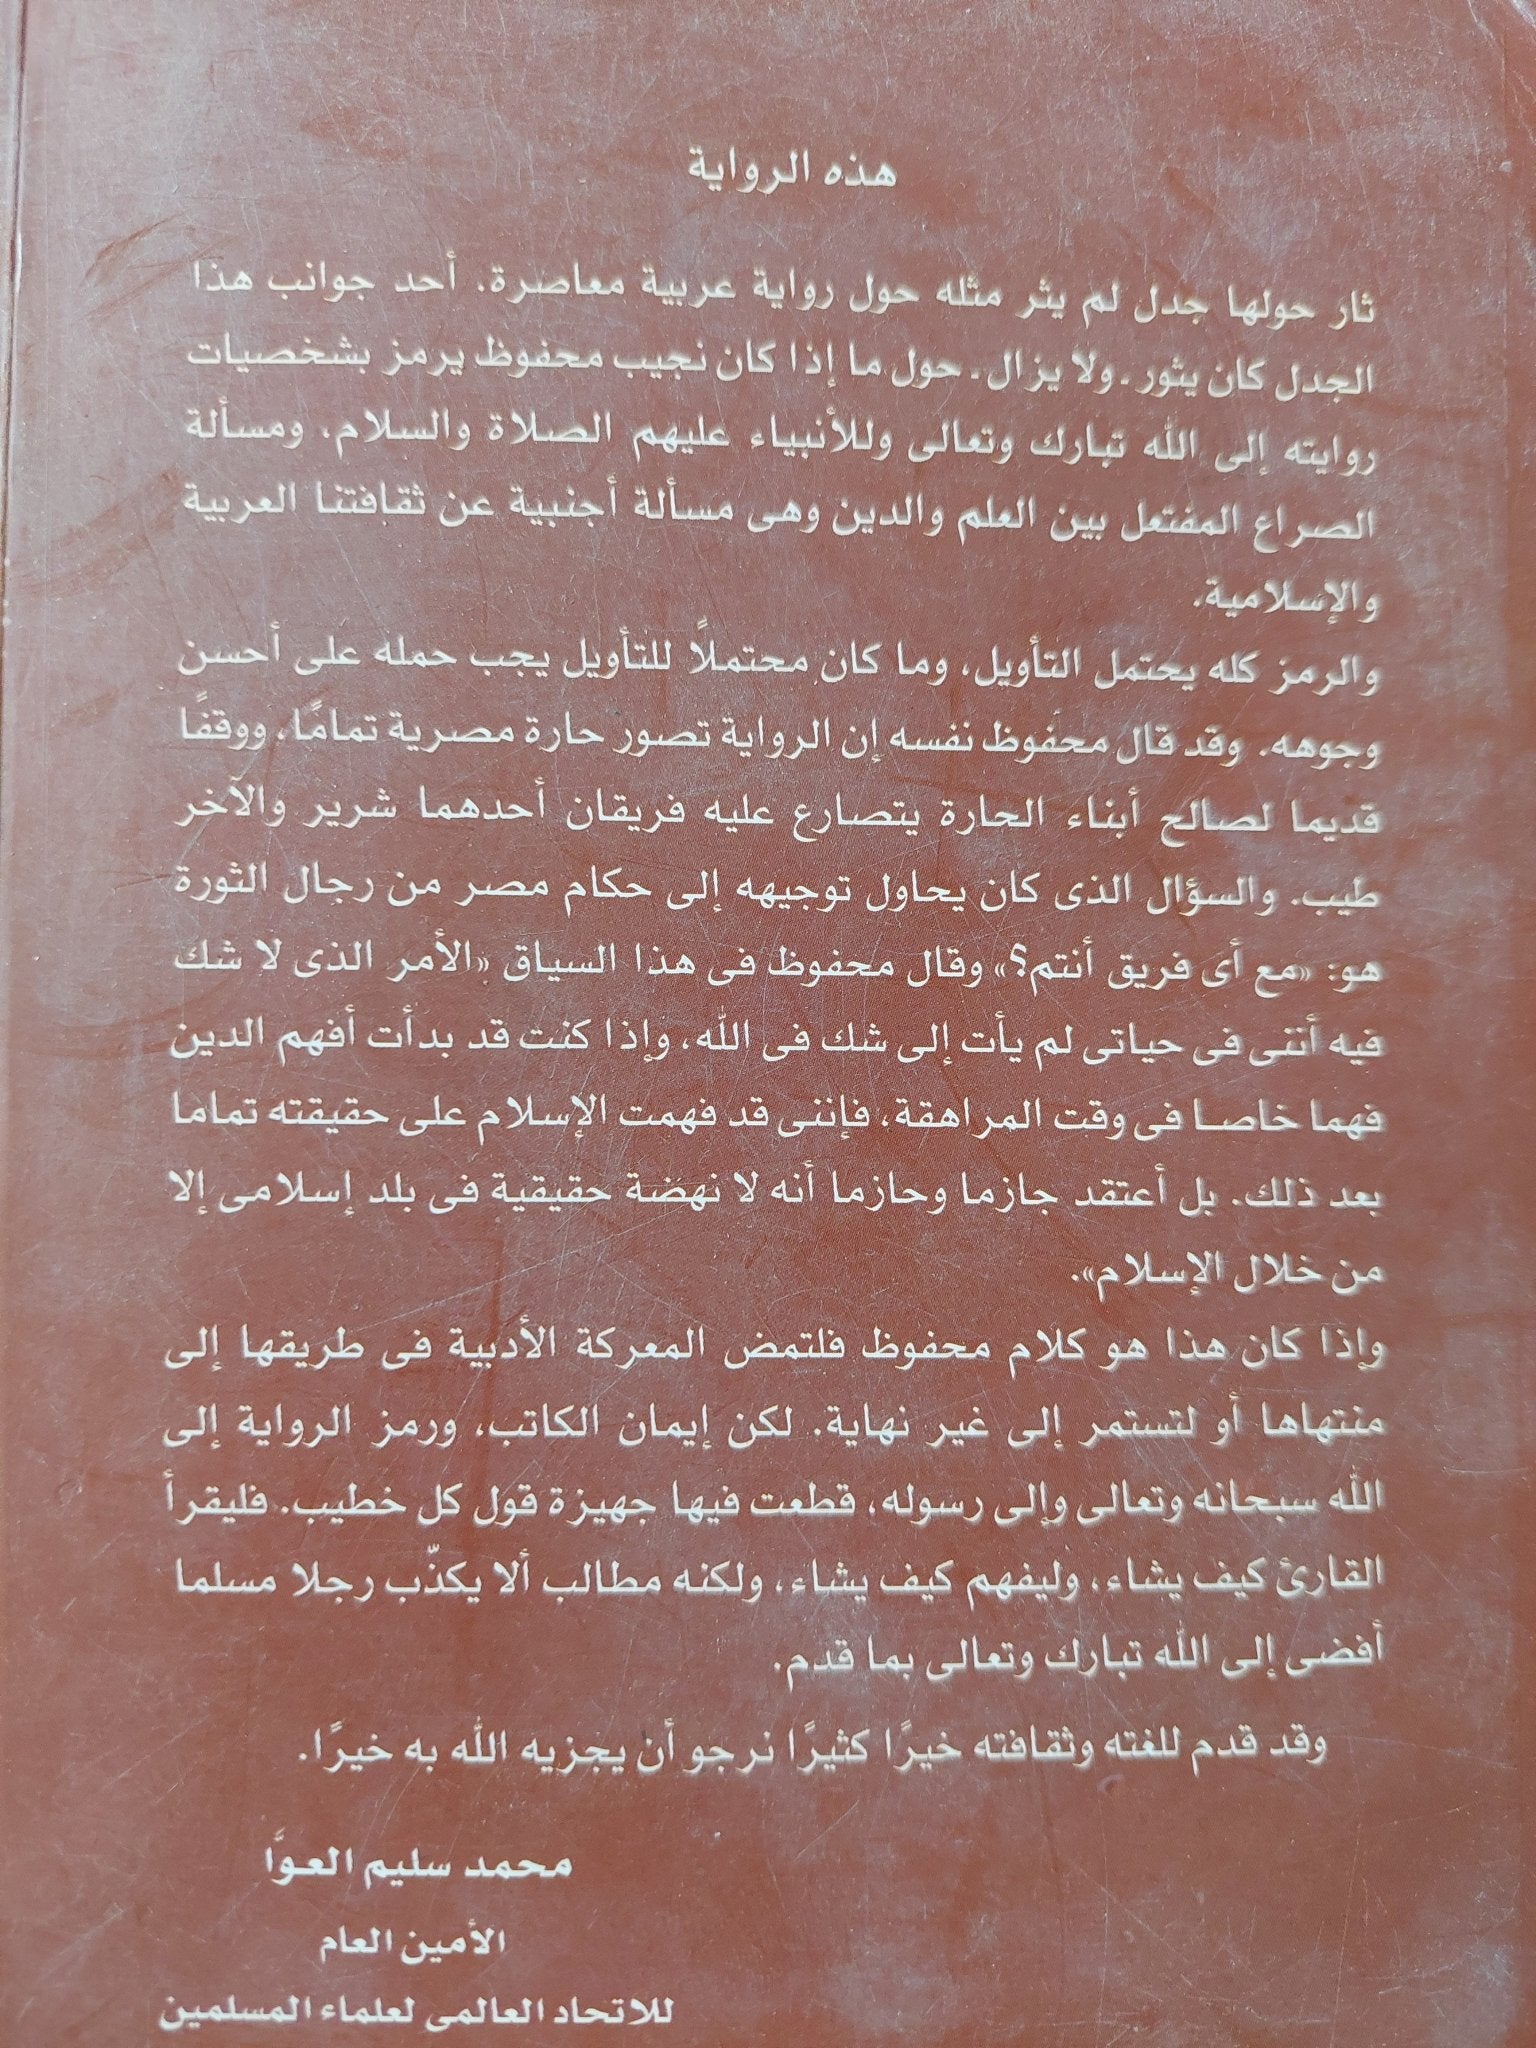 هذه الرواية
ثار حولها جدل لم يثر مثله حول رواية عربية معاصرة. أحد جوانب هذا
الجدل كان يثور ـ ولا يزال ـ حول ما إذا كان نجيب محفوظ يرمز بشخصيات
روايته إلى الله تبارك وتعالى وللأنبياء عليهم الصلاة والسلام، ومسألة
الصراع المفتعل بين العلم والدين وهى مسألة أجنبية عن ثقافتنا العربية
والإسلامية.
والرمز كله يحتمل التأويل، وما كان محتملاً للتأويل يجب حمله على أحسن
وجوهه. وقد قال محفوظ نفسه إن الرواية تصور حارة مصرية تمامًا، ووقفًا
قديما لصالح أبناء الحارة يتصارع عليه فريقان أحدهما شرير والآخر
طيب. والسؤال الذى كان يحاول توجيهه إلى حكام مصر من رجال الثورة
هو: «مع أى فريق أنتم؟» وقال محفوظ فى هذا السياق «الأمر الذى لا شك
فيه أننى فى حياتى لم يأت إلى شك فى الله، وإذا كنت قد بدأت أفهم الدين
فهما خاصا فى وقت المراهقة، فإننى قد فهمت الإسلام على حقيقته تماما
بعد ذلك. بل أعتقد جازما وحازما أنه لا نهضة حقيقية فى بلد إسلامى إلا
من خلال الإسلام».
وإذا كان هذا هو كلام محفوظ فلتمض المعركة الأدبية فى طريقها إلى
منتهاها أو لتستمر إلى غير نهاية. لكن إيمان الكاتب، ورمز الرواية إلى
الله سبحانه وتعالى وإلى رسوله، قطعت فيها جهيزة قول كل خطيب. فليقرأ
القارئ كيف يشاء، وليفهم كيف يشاء، ولكنه مطالب ألا يكذّب رجلا مسلما
أفضى إلى الله تبارك وتعالى بما قدم.
وقد قدم للغته وثقافته خيرًا كثيرًا نرجو أن يجزيه الله به خيرًا.
محمد سليم العوَّا
الأمين العام
للاتحاد العالمى لعلماء المسلمين